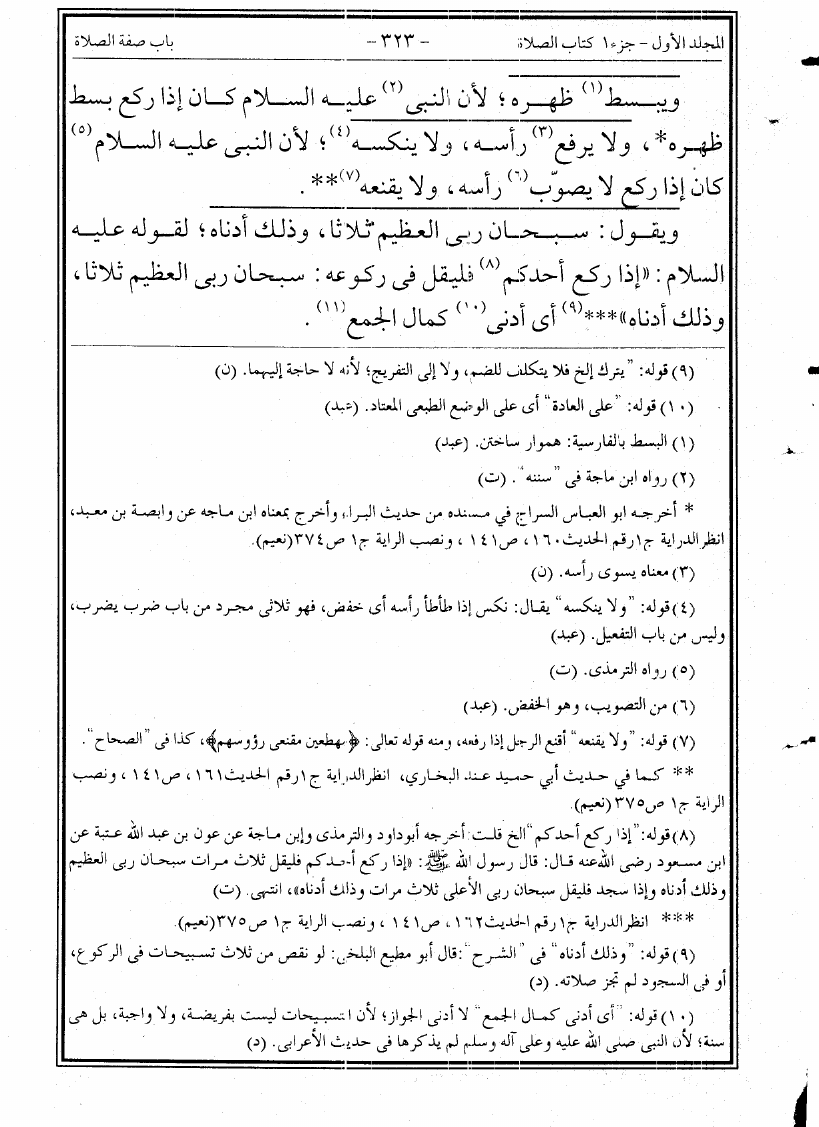 المجلد الأول – جزء١ كتاب الصلاة - ٣٢٣ - باب صفة الصلاة
ويبسط(١) ظهره؛ لأن النبى(٢) عليه السلام كان إذا ركع بسط
ظهره*، ولا يرفع(٣) رأسه، ولا ينكسه(٤)؛ لأن النبى عليه السلام(٥)
كان إذا ركع لا يصوّب(٦) رأسه، ولا يقنعه(٧)**.
ويقول: سبحان ربى العظيم ثلاثا، وذلك أدناه؛ لقوله عليه
السلام: «إذا ركع أحدكم(٨) فليقل فى ركوعه: سبحان ربى العظيم ثلاثا،
وذلك أدناه»***(٩) أى أدنى(١٠) كمال الجمع(١١).
(٩) قوله: "يترك إلخ فلا يتكلف للضم، ولا إلى التفريج؛ لأنه لا حاجة إليهما. (ن)
(١٠) قوله: "على العادة" أى على الوضع الطبعى المعتاد. (عبد)
(١) البسط بالفارسية: هموار ساختن. (عبد)
(٢) رواه ابن ماجة فى "سننه". (ت)
* أخرجه ابو العباس السراج في مسنده من حديث البراء، وأخرج بمعناه ابن ماجه عن وابصة بن معبد،
انظر الدراية ج١ رقم الحديث ١٦٠، ص١٤١ ، ونصب الراية ج١ ص٣٧٤(نعيم).
(٣) معناه يسوى رأسه. (ن)
(٤) قوله: "ولا ينكسه" يقال: نكس إذا طأطأ رأسه أى خفض، فهو ثلاثى مجرد من باب ضرب يضرب،
وليس من باب التفعيل. (عبد)
(٥) رواه الترمذى. (ت)
(٦) من التصويب، وهو الخفض. (عبد)
(٧) قوله: "ولا يقنعه" أقنع الرجل إذا رفعه، ومنه قوله تعالى: ﴿مهطعين مقنعى رؤوسهم﴾، كذا فى "الصحاح".
** كما في حديث أبي حميد عند البخاري، انظر الدراية ج١ رقم الحديث١٦١ ، ص١٤١ ، ونصب
الراية ج١ ص٣٧٥(نعيم).
(٨) قوله: "إذا ركع أحدكم" الخ قلت: أخرجه أبوداود والترمذى وإبن ماجة عن عون بن عبد الله عتبة عن
ابن مسعود رضى الله عنه قال: قال رسول الله ﷺ: «إذا ركع أحدكم فليقل ثلاث مرات سبحان ربى العظيم
وذلك أدناه وإذا سجد فليقل سبحان ربى الأعلى ثلاث مرات وذلك أدناه»، انتهى. (ت)
*** انظر الدراية ج١ رقم الحديث١٦٢، ص١٤١ ، ونصب الراية ج١ ص٣٧٥(نعيم).
(٩) قوله: "وذلك أدناه" فى "الشرح": قال أبو مطيع البلخى: لو نقص من ثلاث تسبيحات فى الركوع،
أو فى السجود لم تجز صلاته. (د)
(١٠) قوله: "أى أدنى كمال الجمع" لا أدنى الجواز؛ لأن التسبيحات ليست بفريضة، ولا واجبة، بل هى
سنة؛ لأن النبى صلى الله عليه وعلى آله وسلم لم يذكرها فى حديث الأعرابى. (د)